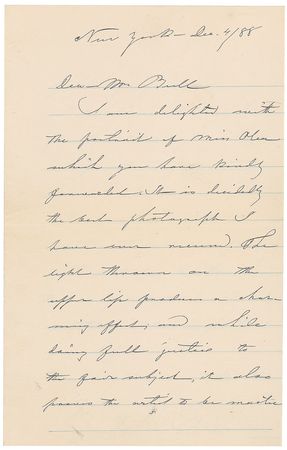 New York - Dec. 4/88
Dear Mr Bull
I am delighted with
the portrait of Miss Olea
which you have kindly
forwarded. It is decidedly
the best photograph I
have ever received. The
light thrown on the
upper lip produces a char-
ming effect, and while
doing full justice to
the fair subject, it also
proves the artist to be master